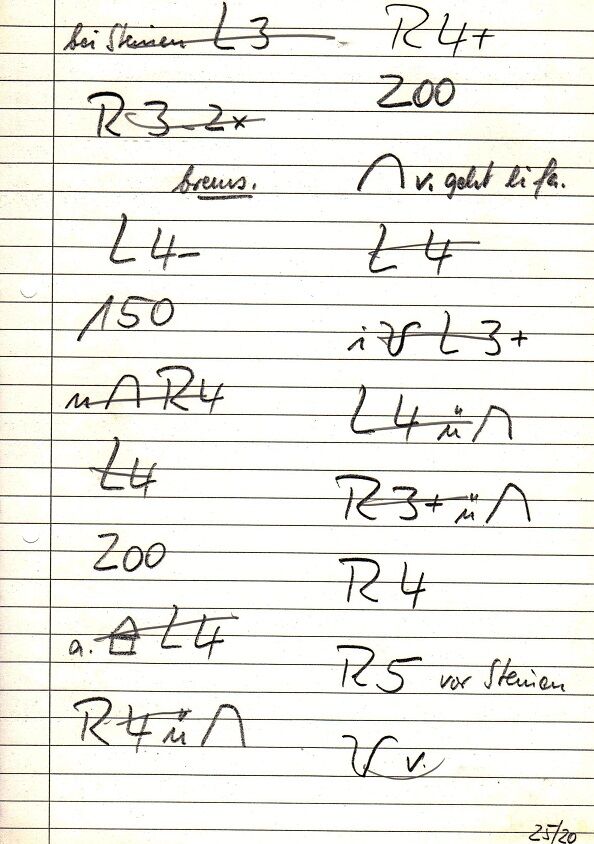 bei Steinen L3
R3-2x
brems.
L4-
150
ü ∩ R4
L4
200
a. L4
R4 ü ∩
R4+
200
∩ v. geht li fa.
L4
i L3+
L4 ü ∩
R3+ ü ∩
R4
R5 vor Steinen
v.
25/20